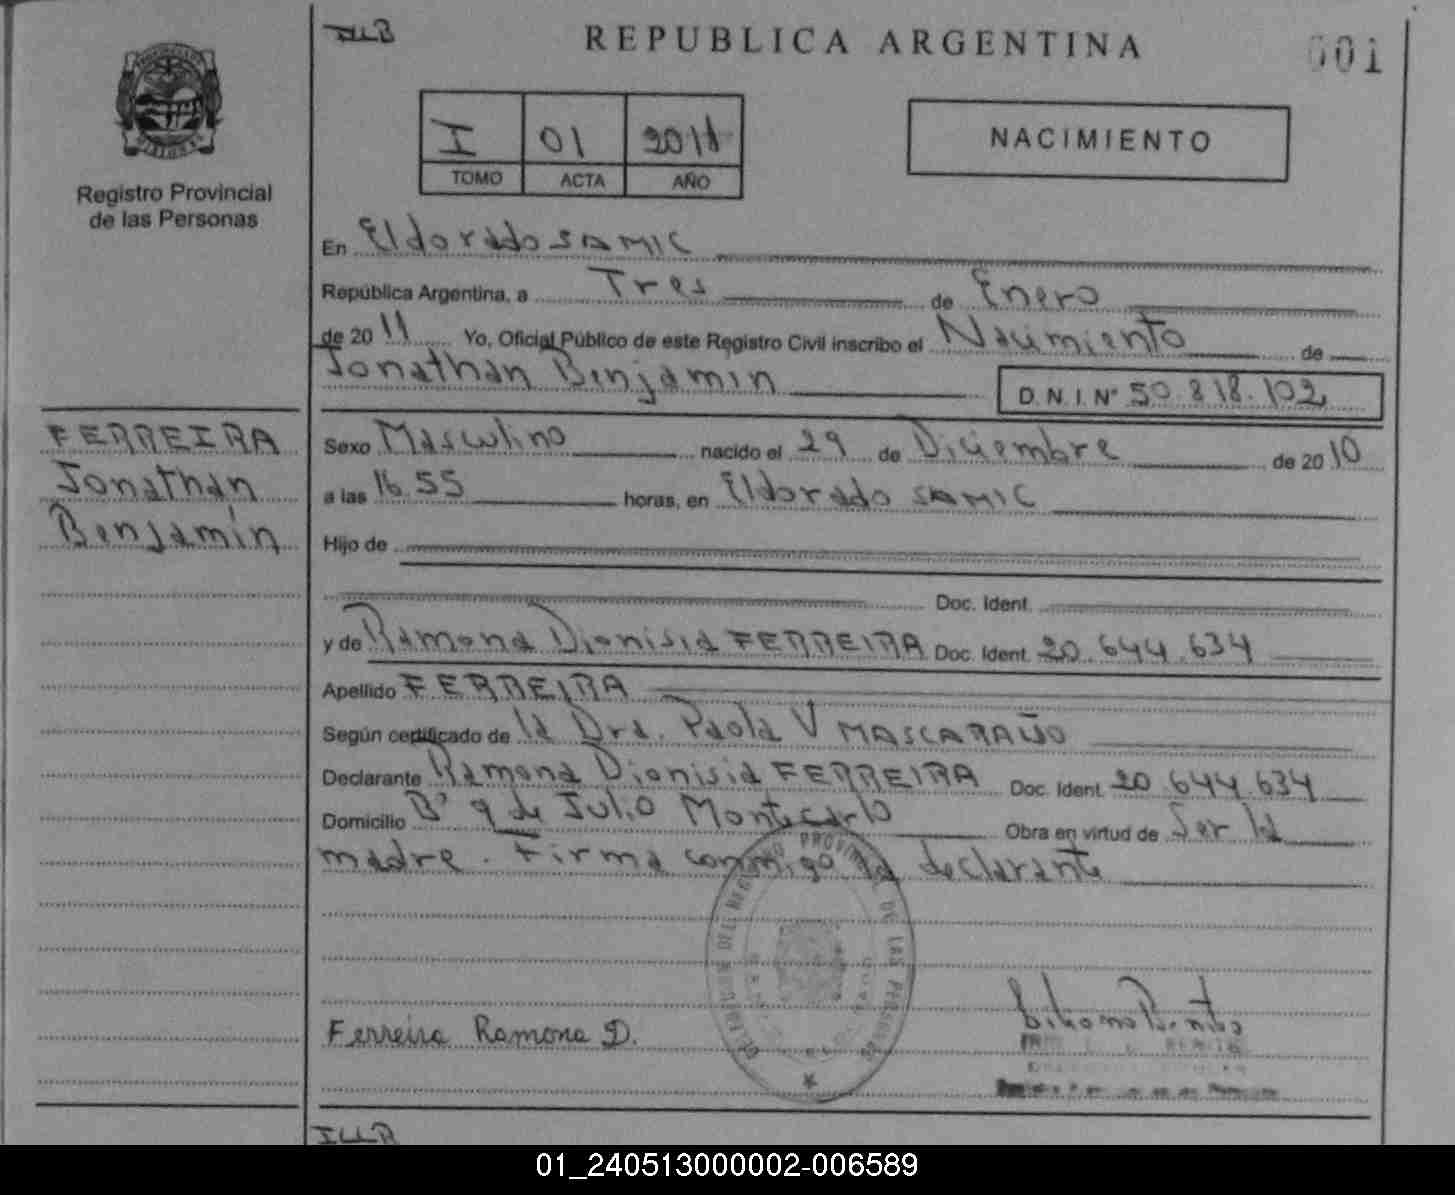 ILLB
REPUBLICA ARGENTINA
001
Registro Provincial
de las Personas
I 01 2011
TOMO ACTA AÑO
NACIMIENTO
En Eldorado SAMIC
República Argentina, a Tres de Enero
de 2011 Yo, Oficial Público de este Registro Civil inscribo el Nacimiento de
Jonathan Benjamin D.N.I. N° 50.818.102
FERREIRA
Jonathan
Benjamín
Sexo Masculino nacido el 29 de Diciembre de 2010
a las 16.55 horas, en Eldorado SAMIC
Hijo de
Doc. Ident.
y de Ramona Dionisia FERREIRA Doc. Ident. 20.644.634
Apellido FERREIRA
Según certificado de la Dra. Paola V MASCARAÑO
Declarante Ramona Dionisia FERREIRA Doc. Ident. 20.644.634
Domicilio B° 9 de Julio Montecarlo Obra en virtud de Ser la
madre. Firma conmigo la declarante
PROVINCIAL DE LAS PERSONAS
Ferreira Ramona D.
01_240513000002-006589